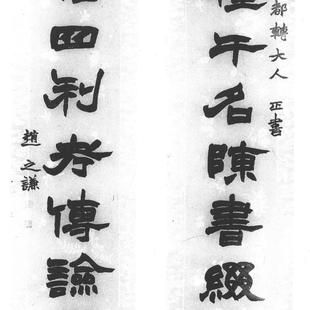 都轉大人 正書
午名陳書綴
四利考傳論
趙之謙